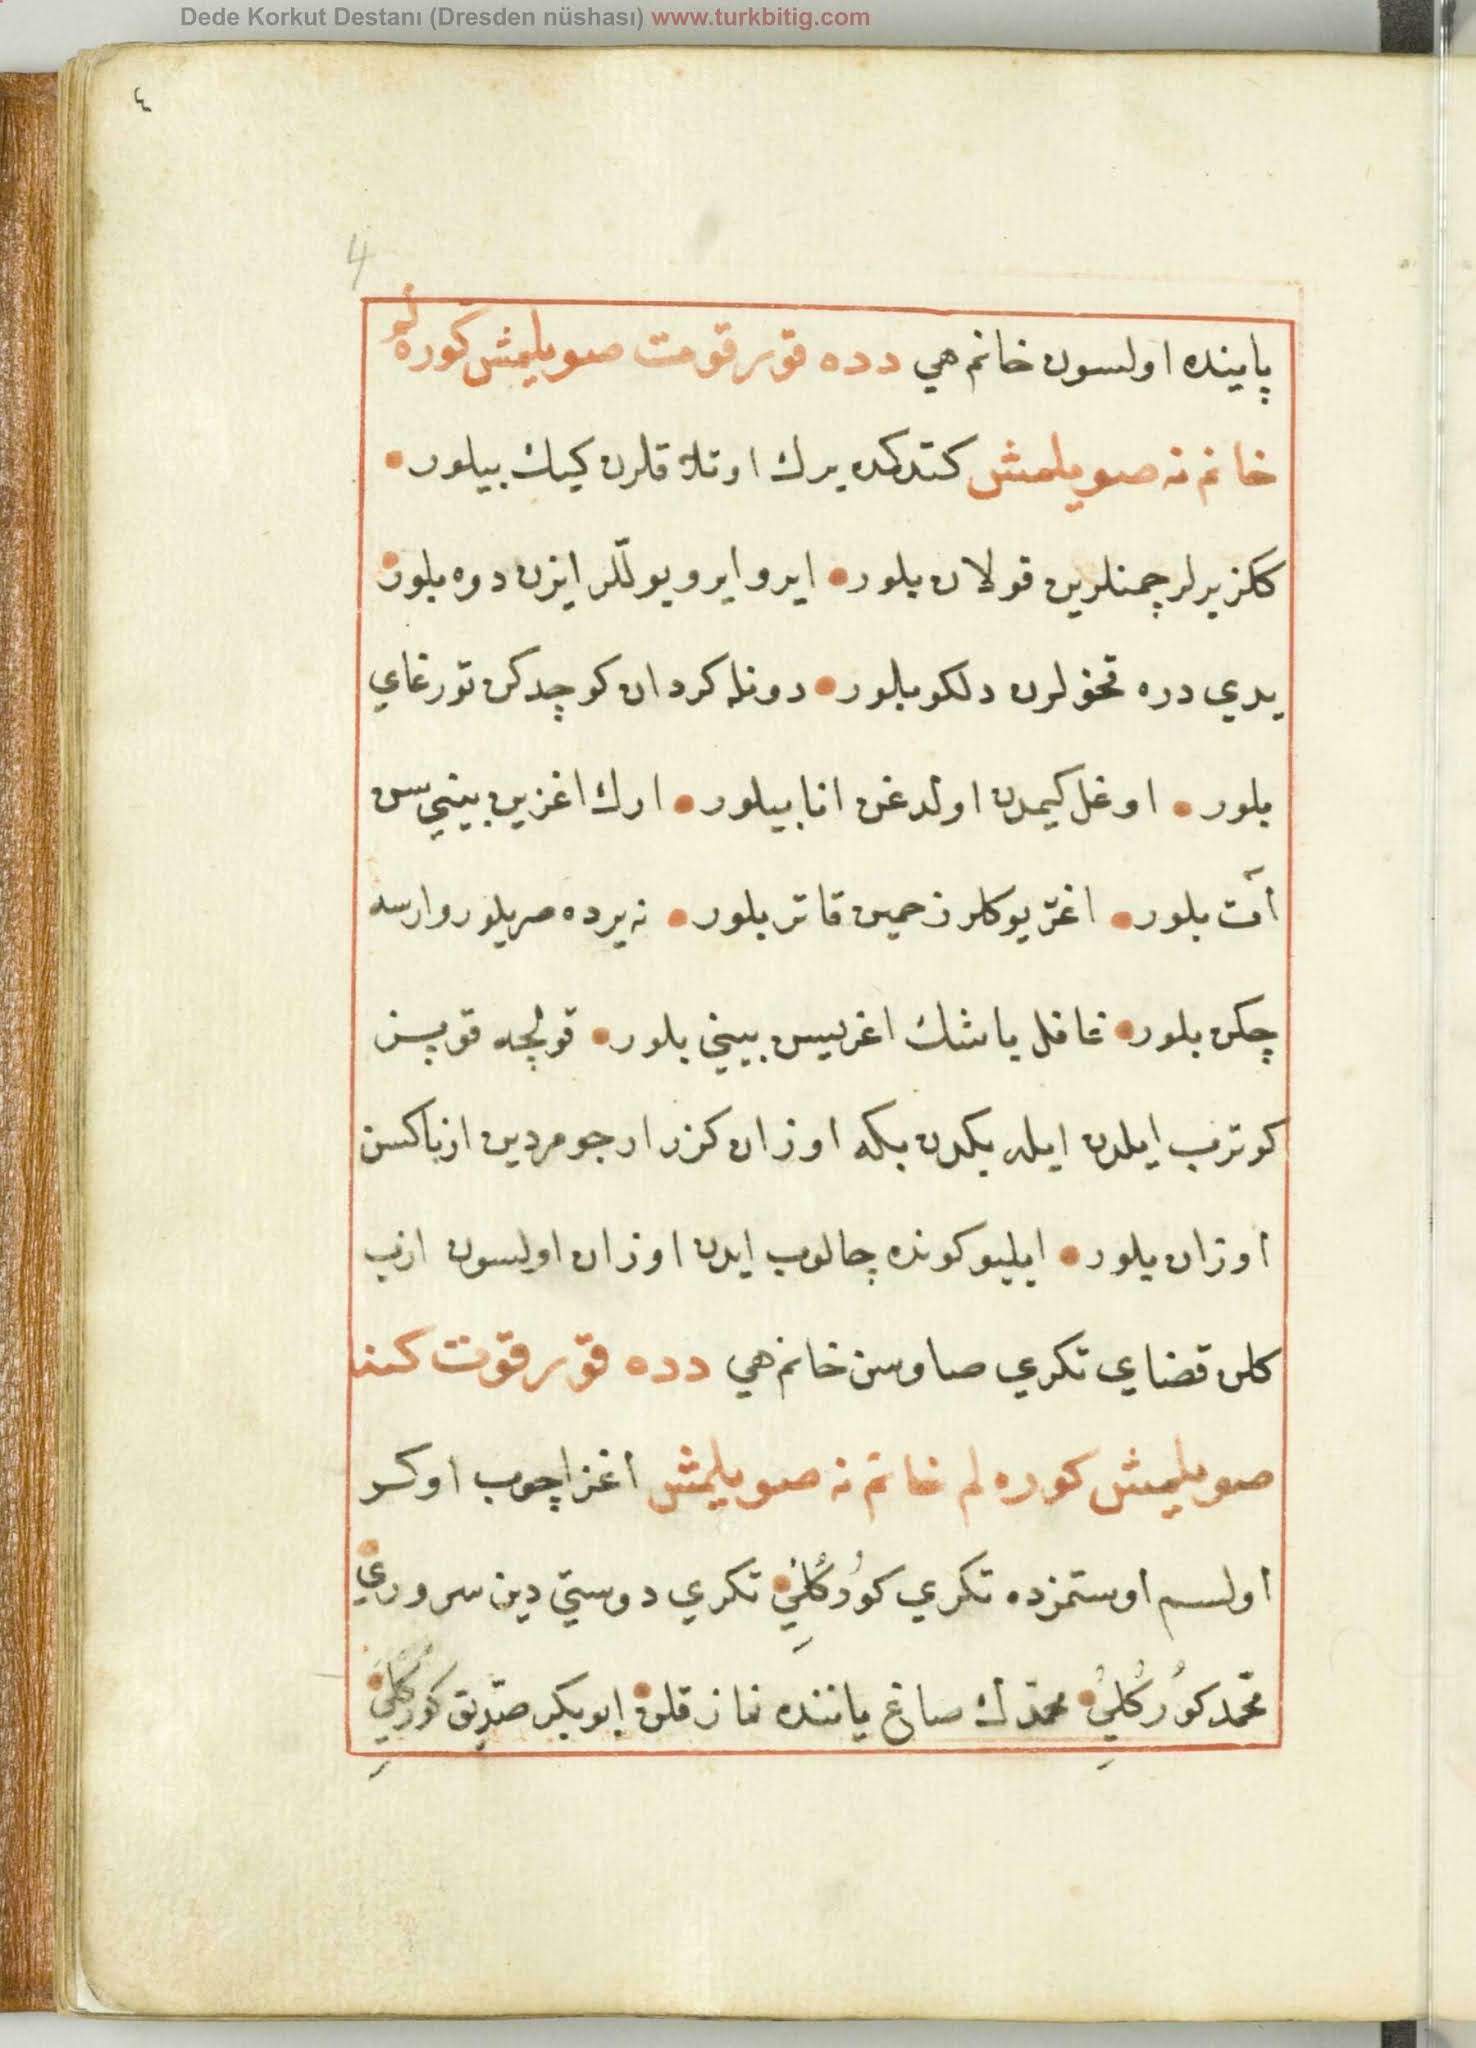 Dede Korkut Destanı (Dresden nüshası) www.turkbitig.com
٤
4
پاینده اولسون خانم هي دده قورقوت صویلمش کوره لم
خانم نه صویلمش کتدکده یرك اوتلاقلرن کیك بیلور
ککز یرلر چمنلرین قولان بیلور ایرو ایرو یوللر ایزن دوه بلور
یدي دره قخولرن دلکو بلور دونله کردان کوچدکن تورغاي
بلور اوغل کیمدن اولدغن انا بیلور ارك اغزین بینيسن
آت بلور اغر یوکلر زحمین قاتر بلور نه یرده صریلور وارسه
چکن بلور غافل باشك اغریسن بیني بلور قولچه قوپز
کوترب ایلدن ایله بکدن بکه اوزان کزر ار جومردین ار ناکسن
اوزان بلور ایلیو کونده چالوب ایدن اوزان اولسون ازب
کلن قضاي تکري صاوسن خانم هي دده قورقوت کنه
صویلمش کوره لم خانم نه صویلمش اغز اچوب اوکر
اولسم اوستمزده تکري کورکلي تکري دوستي دین سروري
محمد کورکلي محمدك صاغ یاننده نماز قلن ابوبکر صدیق کورکلي